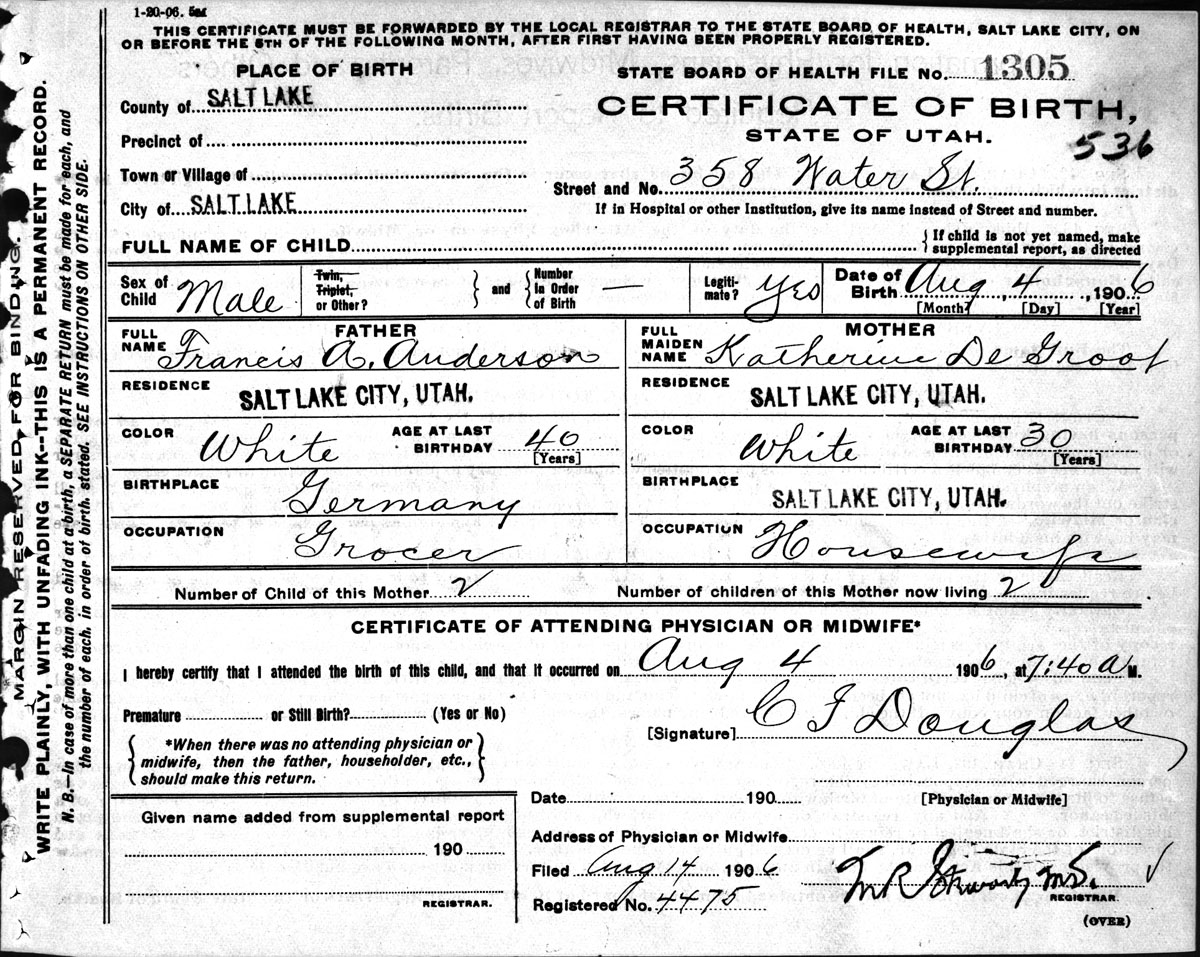 1-20-06. 5M
THIS CERTIFICATE MUST BE FORWARDED BY THE LOCAL REGISTRAR TO THE STATE BOARD OF HEALTH, SALT LAKE CITY, ON
OR BEFORE THE 5TH OF THE FOLLOWING MONTH, AFTER FIRST HAVING BEEN PROPERLY REGISTERED.
PLACE OF BIRTH
STATE BOARD OF HEALTH FILE No. 1305
County of SALT LAKE
CERTIFICATE OF BIRTH,
STATE OF UTAH.
536
Precinct of
Town or Village of
Street and No. 358 Water St.
City of SALT LAKE
If in Hospital or other Institution, give its name instead of Street and number.
FULL NAME OF CHILD
{ If child is not yet named, make
supplemental report, as directed
Sex of Child Male
Twin, Triplet, or Other? } and { Number In Order of Birth —
Legiti-mate? Yes
Date of Birth Aug 4, 1906
[Month] [Day] [Year]
FATHER
FULL NAME Francis A. Anderson
RESIDENCE SALT LAKE CITY, UTAH.
COLOR White AGE AT LAST BIRTHDAY 40
[Years]
BIRTHPLACE Germany
OCCUPATION Grocer
MOTHER
FULL MAIDEN NAME Katherine De Groot
RESIDENCE SALT LAKE CITY, UTAH.
COLOR White AGE AT LAST BIRTHDAY 30
[Years]
BIRTHPLACE SALT LAKE CITY, UTAH.
OCCUPATION Housewife
Number of Child of this Mother 2 Number of children of this Mother now living 2
CERTIFICATE OF ATTENDING PHYSICIAN OR MIDWIFE*
I hereby certify that I attended the birth of this child, and that it occurred on Aug 4 1906, at 7:40 a M.
Premature or Still Birth? (Yes or No)
[Signature] C F Douglas
*When there was no attending physician or
midwife, then the father, householder, etc.,
should make this return.
[Physician or Midwife]
Date 190
Given name added from supplemental report
190
REGISTRAR.
Address of Physician or Midwife
Filed Aug 14 1906
M.D.
REGISTRAR.
Registered No. 4475
(OVER)
MARGIN RESERVED FOR BINDING.
WRITE PLAINLY, WITH UNFADING INK--THIS IS A PERMANENT RECORD.
N. B.—In case of more than one child at a birth, a SEPARATE RETURN must be made for each, and
the number of each, in order of birth, stated. SEE INSTRUCTIONS ON OTHER SIDE.